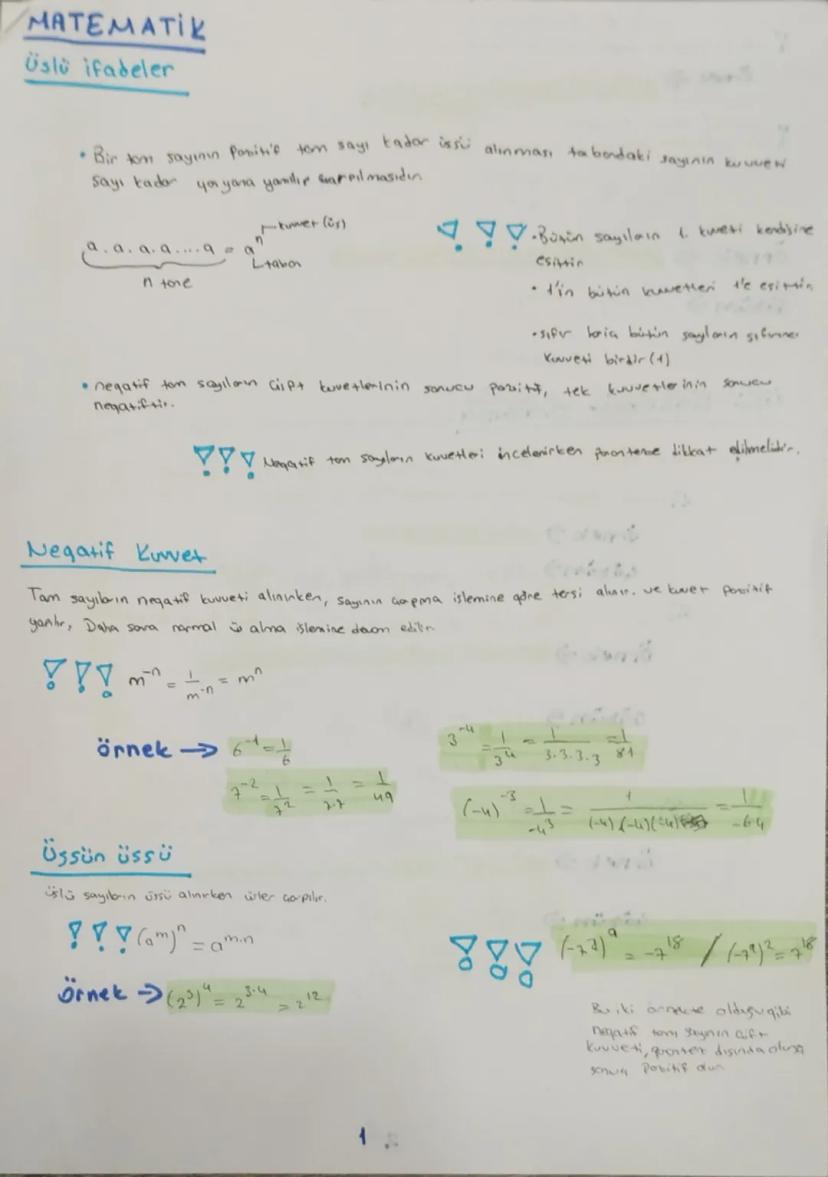 MATEMATİK
Üslü ifadeler
• Bir tam sayının Pozitif tam sayı kadar üssü alınması tabandaki sayının kuvveti
sayı kadar yan yana yazılıp çarpılmasıdır.
a.a.a.a....a = aⁿ
kuvvet (üs)
taban
n tane
• Bütün sayıların 1. kuvveti kendisine
eşittir
• 1'in bütün kuvvetleri 1'e eşittir
• sıfır hariç bütün sayıların sıfırıncı
kuvveti birdir (1)
• negatif tam sayıların çift kuvvetlerinin sonucu pozitif, tek kuvvetlerinin sonucu
negatiftir.
Negatif tam sayıların kuvvetleri incelenirken paranteze dikkat edilmelidir.
Negatif Kuvvet
Tam sayıların negatif kuvveti alınırken, sayının çarpma işlemine göre tersi alınır. ve kuvvet pozitif
yazılır, Daha sonra normal üs alma işlemine devam edilir
m⁻ⁿ = 1/m⁻ⁿ = mⁿ
örnek → 6⁻¹ = 1/6
3⁻⁴ = 1/3⁴ = 1/3.3.3.3 = 1/81
7⁻² = 1/7² = 1/7.7 = 1/49
(-4)⁻³ = 1/-4³ = 1/(-4)(-4)(-4) = 1/-64
Üssün üssü
üslü sayıların üssü alınırken üsler çarpılır.
(aᵐ)ⁿ = aᵐ·ⁿ
(-7²)⁹ = -7¹⁸ / (-7⁹)² = 7¹⁸
örnek → (2³)⁴ = 2³·⁴ = 2¹²
Bu iki örnekte olduğu gibi
negatif tam sayının çift
kuvveti, parantez dışında olursa
sonuç Pozitif olur
1